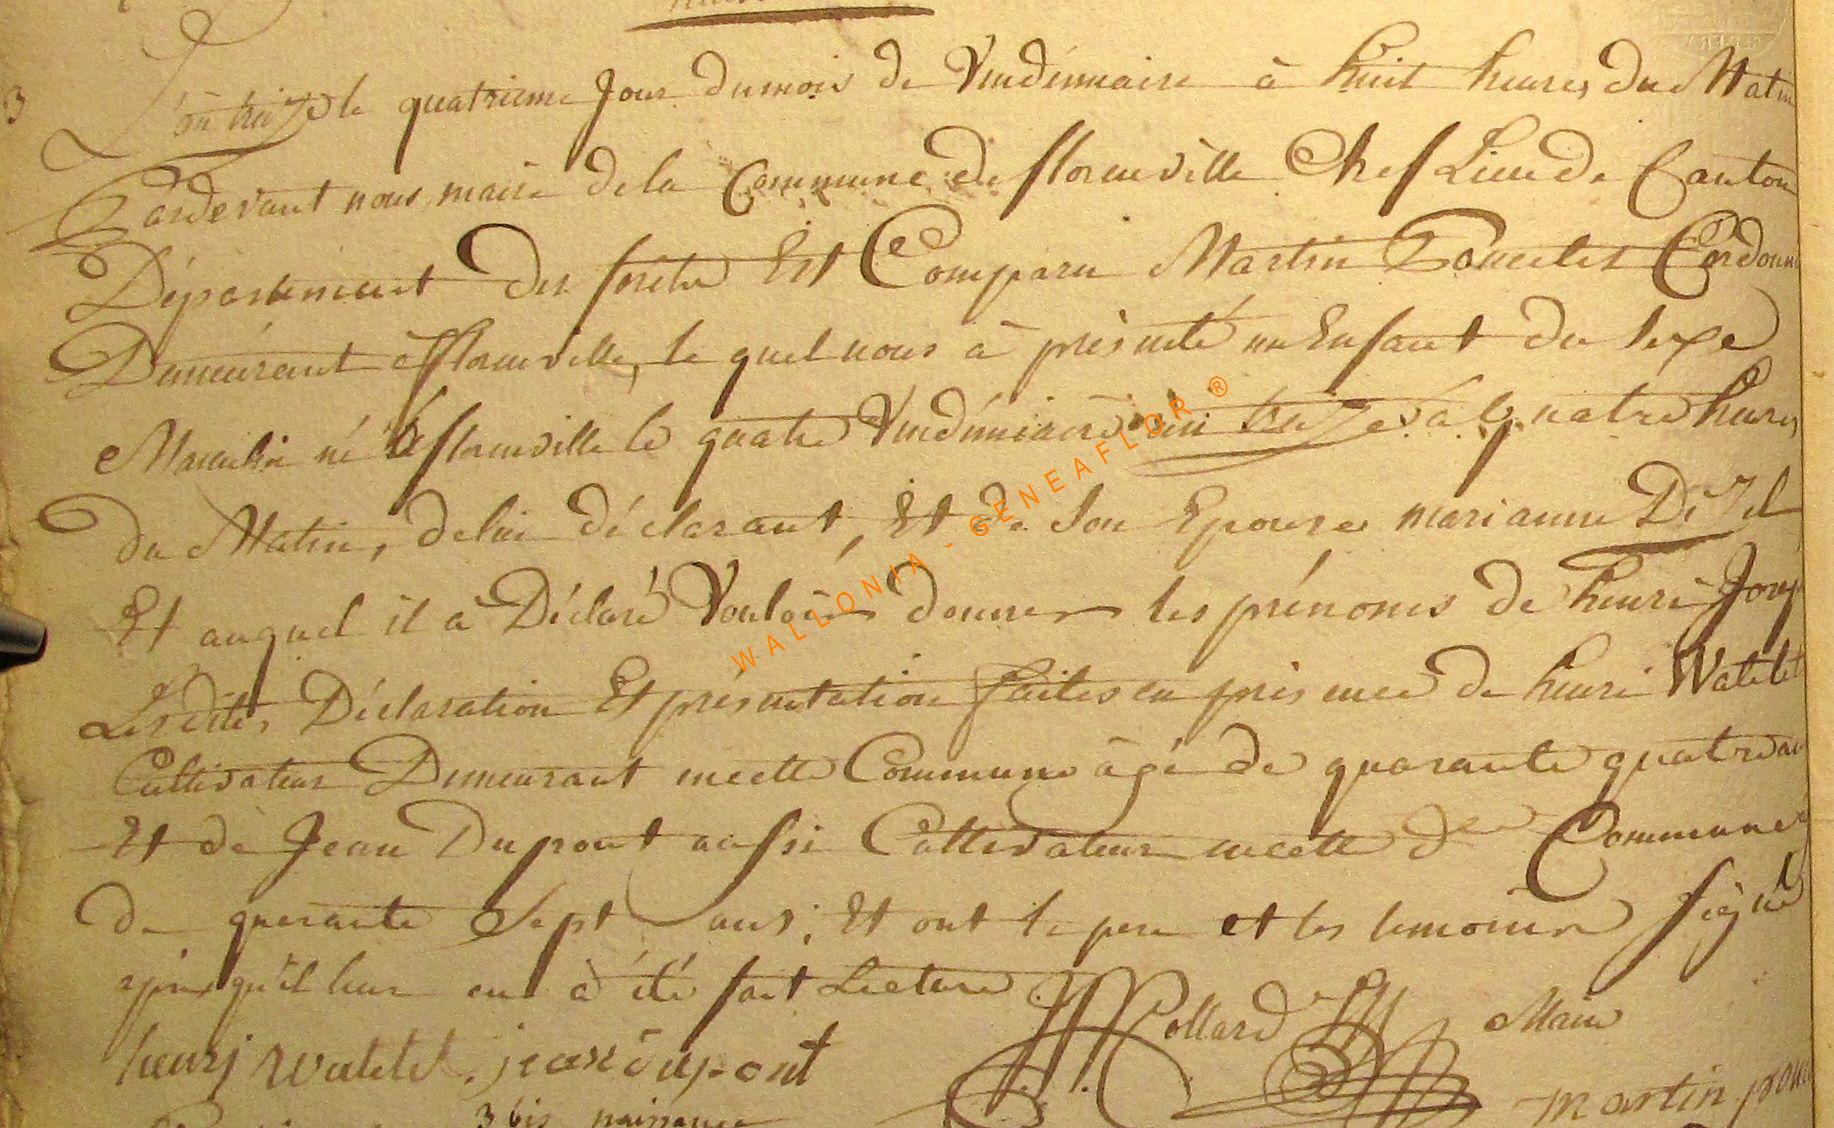 3
L'an treize le quatrieme Jour du mois de Vendémiaire à huit heures du Matin
Pardevant nous maire de la Commune de florenville Chef Lieu de Canton
Département des forêts Est Comparu Martin Poncelet Cordonn
Demeurant à florenville, le quel nous à présenté un Enfant du sexe
Masculin né à florenville le quatre Vendémiaire an treize à quatre heures
du Matin, de lui déclarant, Et de Son Epouse marianne Dizel
Et auquel il a Déclaré Vouloir donner les prénoms de henri Josep
Lesdites Déclaration Et présentation faites en présence de henri Watelet
Cultivateur Demeurant en cette Commune âgé de quarante quatre ans
Et de Jean Dupont aussi Cultivateur en cette d Commune
de quarante Sept ans, Et ont le pere et les temoins signé
après qu'il leur en à été fait Lecture
Collard Maire
henrj watelet. jean dupont
martin pon
3 bis naissance
WALLONIA - GENEAFLOR ®